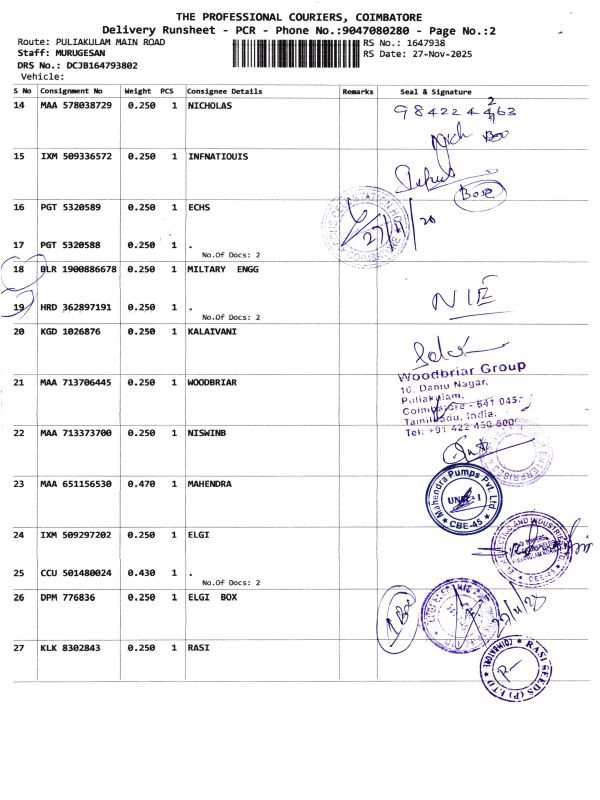 THE PROFESSIONAL COURIERS, COIMBATORE
Delivery Runsheet - PCR - Phone No.:9047080280 - Page No.:2
Route: PULIAKULAM MAIN ROAD
RS No.: 1647938
Staff: MURUGESAN
RS Date: 27-Nov-2025
DRS No.: DCJB164793802
Vehicle:
S No Consignment No Weight PCS Consignee Details Remarks Seal & Signature
14 MAA 578038729 0.250 1 NICHOLAS
15 IXM 509336572 0.250 1 INFNATIOUIS
Bose
16 PGT 5320589 0.250 1 ECHS
17 PGT 5320588 0.250 1 .
No.Of Docs: 2
18 BLR 1900886678 0.250 1 MILTARY ENGG
NIE
19 HRD 362897191 0.250 1 .
No.Of Docs: 2
20 KGD 1026876 0.250 1 KALAIVANI
21 MAA 713706445 0.250 1 WOODBRIAR
Woodbriar Group
10, Damu Nagar,
Puliakulam,
Coimbatore - 641 045.
Tamilnadu, India.
Tel: +91 422 450 600
22 MAA 713373700 0.250 1 NISWINB
23 MAA 651156530 0.470 1 MAHENDRA
Mahendra Pumps Pvt. Ltd.
UNIT - I
CBE-45
24 IXM 509297202 0.250 1 ELGI
25 CCU 501480024 0.430 1 .
No.Of Docs: 2
CBE-45
26 DPM 776836 0.250 1 ELGI BOX
27 KLK 8302843 0.250 1 RASI
RASI SEEDS (P) LTD